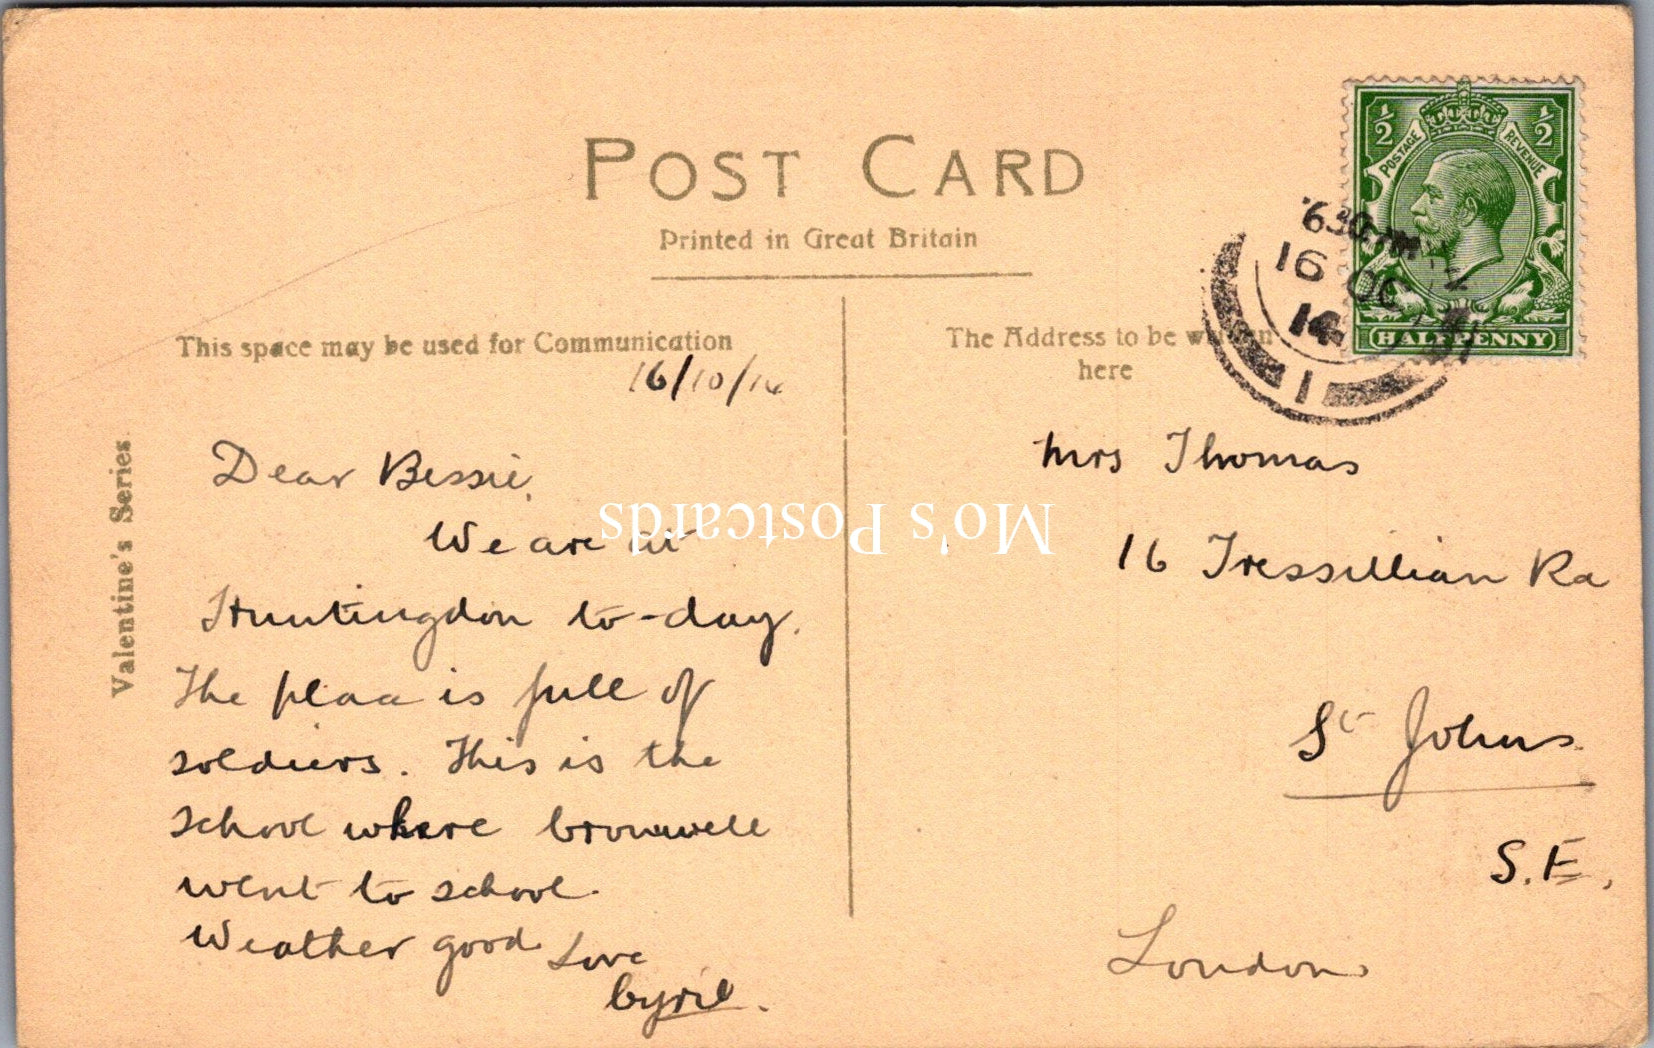 POST CARD
Printed in Great Britain
This space may be used for Communication
16/10/14
Dear Bessie,
We are at
Huntingdon to-day.
The place is full of
soldiers. This is the
school where Cromwell
went to school.
Weather good. Love
Cyril.
Valentine's Series
The Address to be written
here
Mrs Thomas
16 Tressillian Rd
St Johns
S.E.
London
½ ½
POSTAGE REVENUE
HALFPENNY
6 30 PM
16 OC
14
1
Mo's Postcards